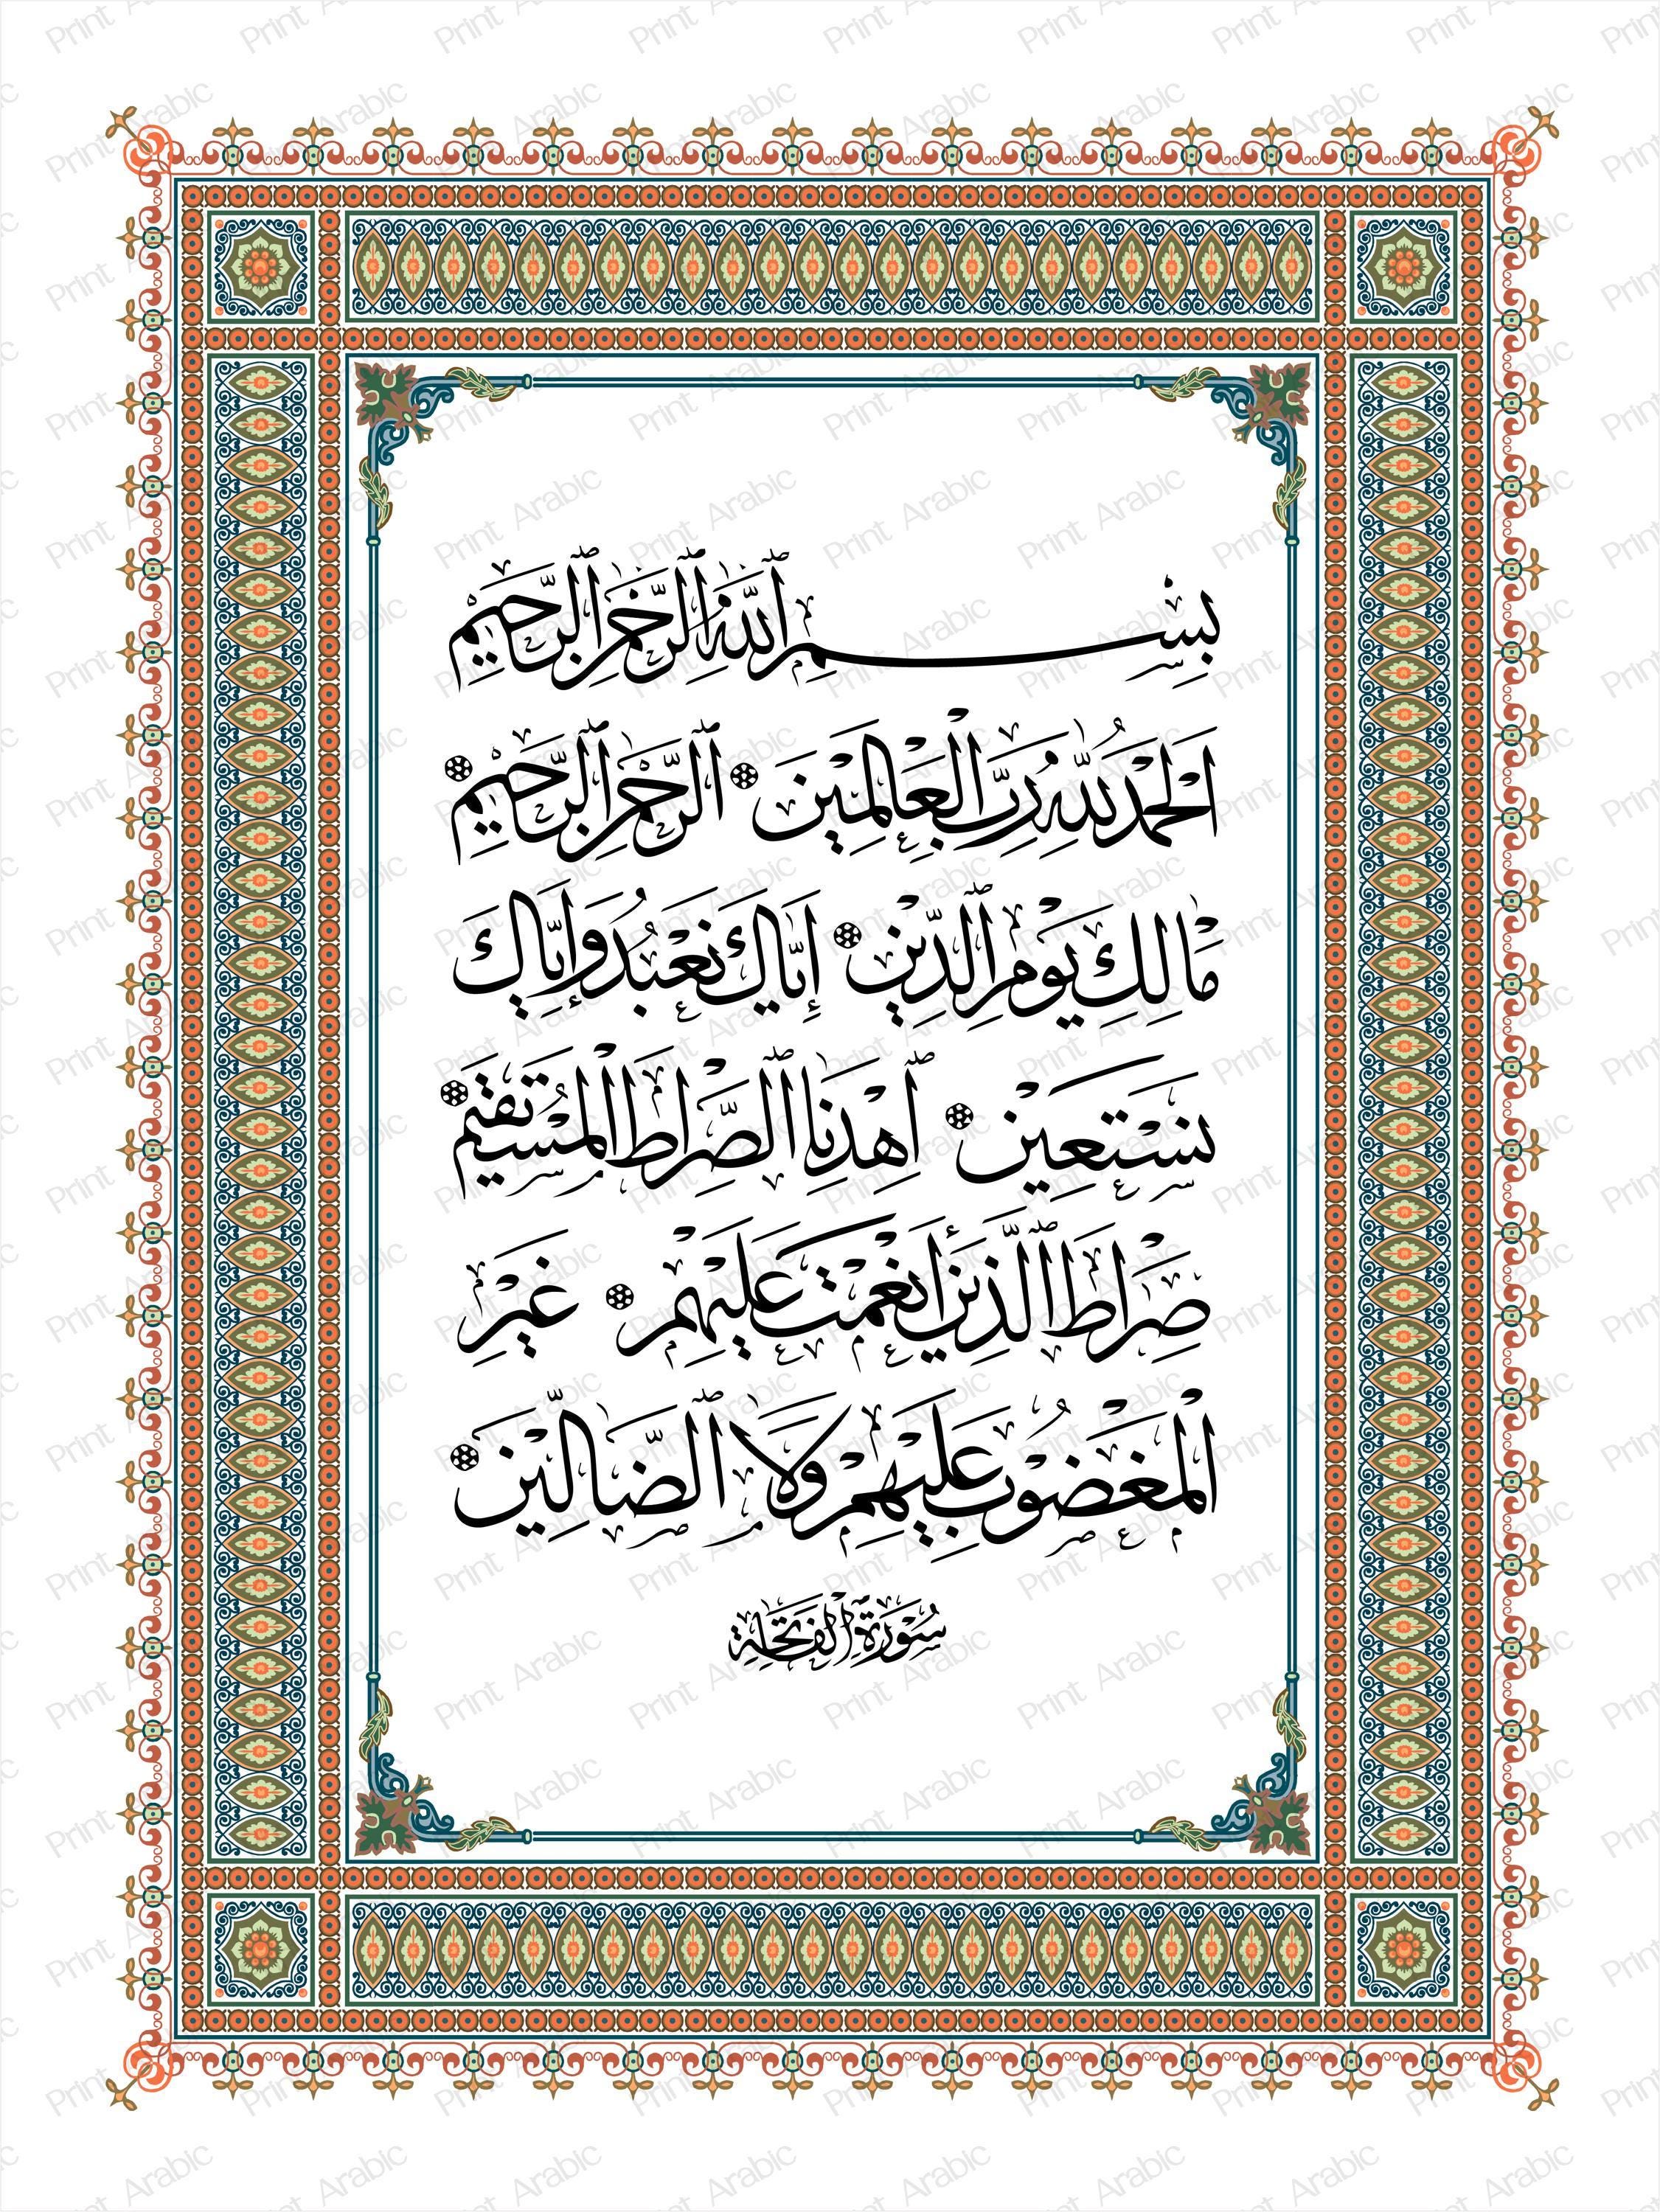 بِسْمِ ٱللَّهِ ٱلرَّحْمَٰنِ ٱلرَّحِيمِ
اَلْحَمْدُ لِلَّهِ رَبِّ الْعَالَمِينَ ۞ ٱلرَّحْمَٰنِ ٱلرَّحِيمِ ۞
مَالِكِ يَوْمِ ٱلدِّينِ ۞ إِيَّاكَ نَعْبُدُ وَإِيَّاكَ
نَسْتَعِينُ ۞ ٱهْدِنَا ٱلصِّرَاطَ الْمُسْتَقِيمَ ۞
صِرَاطَ ٱلَّذِينَ أَنْعَمْتَ عَلَيْهِمْ ۞ غَيْرِ
الْمَغْضُوبِ عَلَيْهِمْ وَلَا ٱلضَّالِّينَ ۞
سُورَةُ الْفَاتِحَةِ
Print Arabic